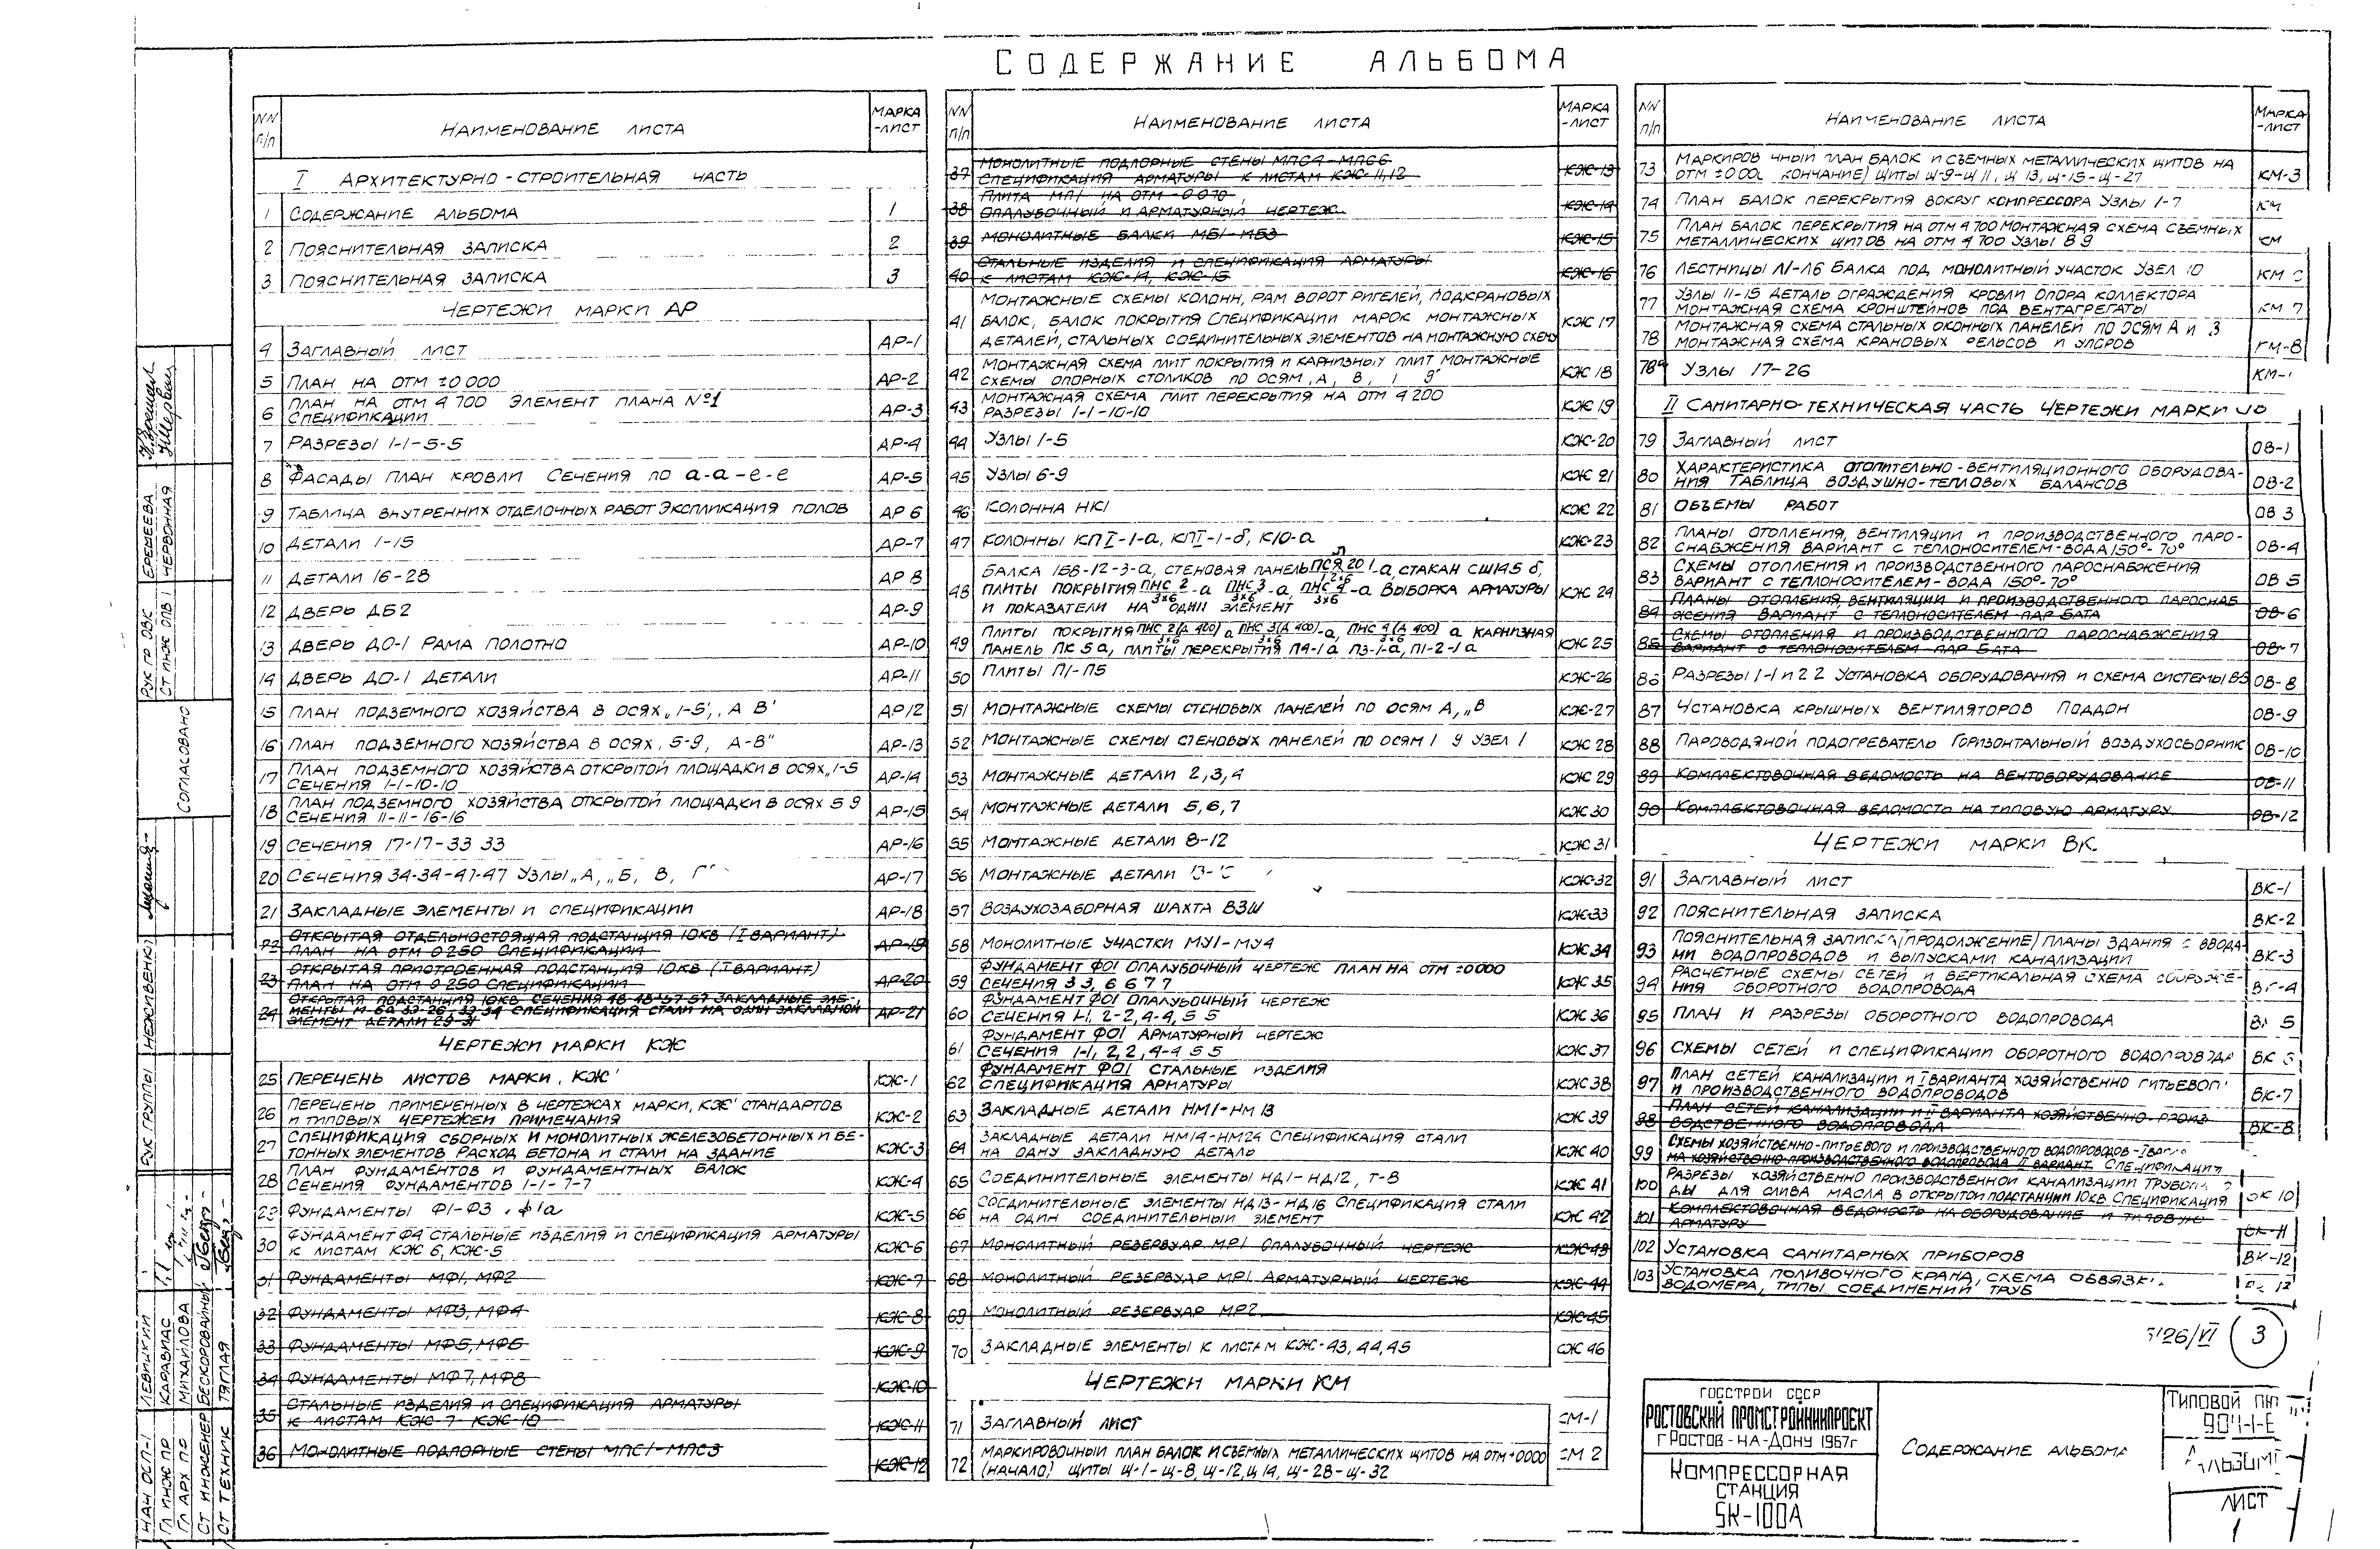 СОДЕРЖАНИЕ АЛЬБОМА
NN п/п НАИМЕНОВАНИЕ ЛИСТА МАРКА -ЛИСТ
I АРХИТЕКТУРНО-СТРОИТЕЛЬНАЯ ЧАСТЬ
1 СОДЕРЖАНИЕ АЛЬБОМА 1
2 ПОЯСНИТЕЛЬНАЯ ЗАПИСКА 2
3 ПОЯСНИТЕЛЬНАЯ ЗАПИСКА 3
ЧЕРТЕЖИ МАРКИ АР
4 ЗАГЛАВНЫЙ ЛИСТ АР-1
5 ПЛАН НА ОТМ ±0000 АР-2
6 ПЛАН НА ОТМ 4 700 ЭЛЕМЕНТ ПЛАНА №1
СПЕЦИФИКАЦИИ АР-3
7 РАЗРЕЗЫ 1-1-5-5 АР-4
8 ФАСАДЫ ПЛАН КРОВЛИ СЕЧЕНИЯ ПО а-а-е-е АР-5
9 ТАБЛИЦА ВНУТРЕННИХ ОТДЕЛОЧНЫХ РАБОТ ЭКСПЛИКАЦИЯ ПОЛОВ АР 6
10 ДЕТАЛИ 1-15 АР-7
11 ДЕТАЛИ 16-28 АР 8
12 ДВЕРЬ ДБ2 АР-9
13 ДВЕРЬ ДО-1 РАМА ПОЛОТНО АР-10
14 ДВЕРЬ ДО-1 ДЕТАЛИ АР-11
15 ПЛАН ПОДЗЕМНОГО ХОЗЯЙСТВА В ОСЯХ „1-5', „А В' АР12
16 ПЛАН ПОДЗЕМНОГО ХОЗЯЙСТВА В ОСЯХ, 5-9, А-В" АР-13
17 ПЛАН ПОДЗЕМНОГО ХОЗЯЙСТВА ОТКРЫТОЙ ПЛОЩАДКИ В ОСЯХ „1-5
СЕЧЕНИЯ 1-1-10-10 АР-14
18 ПЛАН ПОДЗЕМНОГО ХОЗЯЙСТВА ОТКРЫТОЙ ПЛОЩАДКИ В ОСЯХ 5 9
СЕЧЕНИЯ 11-11-16-16 АР-15
19 СЕЧЕНИЯ 17-17-33 33 АР-16
20 СЕЧЕНИЯ 34-34-47-47 УЗЛЫ „А, „Б, В, Г АР-17
21 ЗАКЛАДНЫЕ ЭЛЕМЕНТЫ И СПЕЦИФИКАЦИИ АР-18
22 ОТКРЫТАЯ ОТДЕЛЬНОСТОЯЩАЯ ПОДСТАНЦИЯ 10КВ (I ВАРИАНТ)
ПЛАН НА ОТМ 0 250 СПЕЦИФИКАЦИИ АР-19
23 ОТКРЫТАЯ ПРИСТРОЕННАЯ ПОДСТАНЦИЯ 10КВ (I ВАРИАНТ)
ПЛАН НА ОТМ 0 250 СПЕЦИФИКАЦИИ АР-20
24 ОТКРЫТАЯ ПОДСТАНЦИЯ 10КВ СЕЧЕНИЯ 48 48-57 57 ЗАКЛАДНЫЕ ЭЛЕ-
СПЕЦИФИКАЦИЯ СТАЛИ НА ОДИН ЗАКЛАДНОЙ
ЭЛЕМЕНТ ДЕТАЛИ 29-31 АР-21
ЧЕРТЕЖИ МАРКИ КЖ
25 ПЕРЕЧЕНЬ ЛИСТОВ МАРКИ, КЖ' КЖ-1
26 ПЕРЕЧЕНЬ ПРИМЕНЕННЫХ В ЧЕРТЕЖАХ МАРКИ, КЖ' СТАНДАРТОВ
И ТИПОВЫХ ЧЕРТЕЖЕЙ ПРИМЕЧАНИЯ КЖ-2
27 СПЕЦИФИКАЦИЯ СБОРНЫХ И МОНОЛИТНЫХ ЖЕЛЕЗОБЕТОННЫХ И БЕ-
ТОННЫХ ЭЛЕМЕНТОВ РАСХОД БЕТОНА И СТАЛИ НА ЗДАНИЕ КЖ-3
28 ПЛАН ФУНДАМЕНТОВ И ФУНДАМЕНТНЫХ БАЛОК
СЕЧЕНИЯ ФУНДАМЕНТОВ 1-1-7-7 КЖ-4
29 ФУНДАМЕНТЫ Ф1-Ф3, Ф1а КЖ-5
30 ФУНДАМЕНТ Ф4 СТАЛЬНЫЕ ИЗДЕЛИЯ И СПЕЦИФИКАЦИЯ АРМАТУРЫ
К ЛИСТАМ КЖ 6, КЖ-5 КЖ-6
31 ФУНДАМЕНТЫ МФ1, МФ2 КЖ-7
32 ФУНДАМЕНТЫ МФ3, МФ4 КЖ-8
33 ФУНДАМЕНТЫ МФ5, МФ6 КЖ-9
34 ФУНДАМЕНТЫ МФ7, МФ8 КЖ-10
35 СТАЛЬНЫЕ ИЗДЕЛИЯ И СПЕЦИФИКАЦИЯ АРМАТУРЫ
К ЛИСТАМ КЖ-7 КЖ-10 КЖ-11
36 МОНОЛИТНЫЕ ПОДПОРНЫЕ СТЕНЫ МПС1-МПС3 КЖ-12
NN п/п НАИМЕНОВАНИЕ ЛИСТА МАРКА -ЛИСТ
37 МОНОЛИТНЫЕ ПОДПОРНЫЕ СТЕНЫ МПС4-МПС6
СПЕЦИФИКАЦИЯ АРМАТУРЫ К ЛИСТАМ КЖ-11,12 КЖ-13
38 ПЛИТА МП1 НА ОТМ -0 070
ОПАЛУБОЧНЫЙ И АРМАТУРНЫЙ ЧЕРТЕЖ КЖ-14
39 МОНОЛИТНЫЕ БАЛКИ МБ1-МБ3 КЖ-15
40 СТАЛЬНЫЕ ИЗДЕЛИЯ И СПЕЦИФИКАЦИЯ АРМАТУРЫ
К ЛИСТАМ КЖ-14, КЖ-15 КЖ-16
МОНТАЖНЫЕ СХЕМЫ КОЛОНН, РАМ ВОРОТ РИГЕЛЕЙ, ПОДКРАНОВЫХ
41 БАЛОК, БАЛОК ПОКРЫТИЯ СПЕЦИФИКАЦИИ МАРОК МОНТАЖНЫХ КЖ 17
ДЕТАЛЕЙ, СТАЛЬНЫХ СОЕДИНИТЕЛЬНЫХ ЭЛЕМЕНТОВ НА МОНТАЖНУЮ СХЕМУ
42 МОНТАЖНАЯ СХЕМА ПЛИТ ПОКРЫТИЯ И КАРНИЗНЫХ ПЛИТ МОНТАЖНЫЕ
СХЕМЫ ОПОРНЫХ СТОЛИКОВ ПО ОСЯМ, А, В, 1 9 КЖ 18
43 МОНТАЖНАЯ СХЕМА ПЛИТ ПЕРЕКРЫТИЯ НА ОТМ 4 200
РАЗРЕЗЫ 1-1-10-10 КЖ 19
44 УЗЛЫ 1-5 КЖ-20
45 УЗЛЫ 6-9 КЖ 21
46 КОЛОННА НК1 КЖ 22
47 КОЛОННЫ КПI-1-а, КПI-1-б, К10-а КЖ-23
БАЛКА 1БВ-12-3-а, СТЕНОВАЯ ПАНЕЛЬ ПСЯ 20 1-а, СТАКАН СШ14.5 б,
48 ПЛИТЫ ПОКРЫТИЯ ПНС 2/3×6-а ПНС 3/3×6-а, ПНС 4/3×6-а ВЫБОРКА АРМАТУРЫ КЖ 24
И ПОКАЗАТЕЛИ НА ОДИН ЭЛЕМЕНТ
49 ПЛИТЫ ПОКРЫТИЯ ПНС 2(Д 400)/3×6 а ПНС 3(Д 400)/3×6-а, ПНС 4(Д 400)/3×6 а КАРНИЗНАЯ
ПАНЕЛЬ ПК 5а, ПЛИТЫ ПЕРЕКРЫТИЯ П4-1а П3-1-а, П1-2-1а КЖ 25
50 ПЛИТЫ П1-П5 КЖ-26
51 МОНТАЖНЫЕ СХЕМЫ СТЕНОВЫХ ПАНЕЛЕЙ ПО ОСЯМ А, „В КЖ-27
52 МОНТАЖНЫЕ СХЕМЫ СТЕНОВЫХ ПАНЕЛЕЙ ПО ОСЯМ 1 9 УЗЕЛ 1 КЖ 28
53 МОНТАЖНЫЕ ДЕТАЛИ 2,3,4 КЖ 29
54 МОНТАЖНЫЕ ДЕТАЛИ 5,6,7 КЖ 30
55 МОНТАЖНЫЕ ДЕТАЛИ 8-12 КЖ 31
56 МОНТАЖНЫЕ ДЕТАЛИ КЖ-32
57 ВОЗДУХОЗАБОРНАЯ ШАХТА ВЗШ КЖ-33
58 МОНОЛИТНЫЕ УЧАСТКИ МУ1-МУ4 КЖ 34
59 ФУНДАМЕНТ ФО1 ОПАЛУБОЧНЫЙ ЧЕРТЕЖ ПЛАН НА ОТМ ±0000
СЕЧЕНИЯ 3 3, 6 6 7 7 КЖ 35
60 ФУНДАМЕНТ ФО1 ОПАЛУБОЧНЫЙ ЧЕРТЕЖ
СЕЧЕНИЯ 1-1, 2-2, 4-4, 5 5 КЖ 36
61 ФУНДАМЕНТ ФО1 АРМАТУРНЫЙ ЧЕРТЕЖ
СЕЧЕНИЯ 1-1, 2,2, 4-4 5 5 КЖ 37
62 ФУНДАМЕНТ ФО1 СТАЛЬНЫЕ ИЗДЕЛИЯ
СПЕЦИФИКАЦИЯ АРМАТУРЫ КЖ 38
63 ЗАКЛАДНЫЕ ДЕТАЛИ НМ1-НМ 13 КЖ 39
64 ЗАКЛАДНЫЕ ДЕТАЛИ НМ14-НМ24 СПЕЦИФИКАЦИЯ СТАЛИ
НА ОДНУ ЗАКЛАДНУЮ ДЕТАЛЬ КЖ 40
65 СОЕДИНИТЕЛЬНЫЕ ЭЛЕМЕНТЫ НД1-НД12, Т-8 КЖ 41
66 СОЕДИНИТЕЛЬНЫЕ ЭЛЕМЕНТЫ НД13-НД16 СПЕЦИФИКАЦИЯ СТАЛИ
НА ОДИН СОЕДИНИТЕЛЬНЫЙ ЭЛЕМЕНТ КЖ 42
67 МОНОЛИТНЫЙ РЕЗЕРВУАР МР1 ОПАЛУБОЧНЫЙ ЧЕРТЕЖ КЖ-43
68 МОНОЛИТНЫЙ РЕЗЕРВУАР МР1 АРМАТУРНЫЙ ЧЕРТЕЖ КЖ-44
69 МОНОЛИТНЫЙ РЕЗЕРВУАР МР2 КЖ-45
70 ЗАКЛАДНЫЕ ЭЛЕМЕНТЫ К ЛИСТАМ КЖ-43, 44, 45 КЖ 46
ЧЕРТЕЖИ МАРКИ КМ
71 ЗАГЛАВНЫЙ ЛИСТ КМ-1
72 МАРКИРОВОЧНЫЙ ПЛАН БАЛОК И СЪЕМНЫХ МЕТАЛЛИЧЕСКИХ ЩИТОВ НА ОТМ ±0000
(НАЧАЛО) ЩИТЫ Щ-1-Щ-8, Щ-12, Щ 14, Щ-28-Щ-32 КМ 2
NN п/п НАИМЕНОВАНИЕ ЛИСТА МАРКА -ЛИСТ
73 МАРКИРОВ ЧНЫЙ ПЛАН БАЛОК И СЪЕМНЫХ МЕТАЛЛИЧЕСКИХ ЩИТОВ НА
ОТМ ±0 000 КОНЧАНИЕ) ЩИТЫ Щ-9-Щ 11, Щ 13, Щ-15-Щ-27 КМ-3
74 ПЛАН БАЛОК ПЕРЕКРЫТИЯ ВОКРУГ КОМПРЕССОРА УЗЛЫ 1-7 КМ
75 ПЛАН БАЛОК ПЕРЕКРЫТИЯ НА ОТМ 4 700 МОНТАЖНАЯ СХЕМА СЪЕМНЫХ
МЕТАЛЛИЧЕСКИХ ЩИТОВ НА ОТМ 4 700 УЗЛЫ 8 9 КМ
76 ЛЕСТНИЦЫ Л1-Л6 БАЛКА ПОД МОНОЛИТНЫЙ УЧАСТОК УЗЕЛ 10 КМ
77 УЗЛЫ 11-15 ДЕТАЛЬ ОГРАЖДЕНИЯ КРОВЛИ ОПОРА КОЛЛЕКТОРА
МОНТАЖНАЯ СХЕМА КРОНШТЕЙНОВ ПОД ВЕНТАГРЕГАТЫ КМ 7
78 МОНТАЖНАЯ СХЕМА СТАЛЬНЫХ ОКОННЫХ ПАНЕЛЕЙ ПО ОСЯМ А И З
МОНТАЖНАЯ СХЕМА КРАНОВЫХ РЕЛЬСОВ И УПОРОВ КМ-8
78а УЗЛЫ 17-26 КМ-
II САНИТАРНО-ТЕХНИЧЕСКАЯ ЧАСТЬ ЧЕРТЕЖИ МАРКИ ОВ
79 ЗАГЛАВНЫЙ ЛИСТ ОВ-1
80 ХАРАКТЕРИСТИКА ОТОПИТЕЛЬНО-ВЕНТИЛЯЦИОННОГО ОБОРУДОВА-
НИЯ ТАБЛИЦА ВОЗДУШНО-ТЕПЛОВЫХ БАЛАНСОВ ОВ-2
81 ОБЪЕМЫ РАБОТ ОВ 3
82 ПЛАНЫ ОТОПЛЕНИЯ, ВЕНТИЛЯЦИИ И ПРОИЗВОДСТВЕННОГО ПАРО-
СНАБЖЕНИЯ ВАРИАНТ С ТЕПЛОНОСИТЕЛЕМ-ВОДА 150°-70° ОВ-4
83 СХЕМЫ ОТОПЛЕНИЯ И ПРОИЗВОДСТВЕННОГО ПАРОСНАБЖЕНИЯ
ВАРИАНТ С ТЕПЛОНОСИТЕЛЕМ-ВОДА 150°-70° ОВ 5
84 ПЛАНЫ ОТОПЛЕНИЯ, ВЕНТИЛЯЦИИ И ПРОИЗВОДСТВЕННОГО ПАРОСНАБ
ЖЕНИЯ ВАРИАНТ С ТЕПЛОНОСИТЕЛЕМ ПАР 6АТА ОВ-6
85 СХЕМЫ ОТОПЛЕНИЯ И ПРОИЗВОДСТВЕННОГО ПАРОСНАБЖЕНИЯ
ВАРИАНТ С ТЕПЛОНОСИТЕЛЕМ ПАР 6АТА ОВ-7
86 РАЗРЕЗЫ 1-1 И 2 2 УСТАНОВКА ОБОРУДОВАНИЯ И СХЕМА СИСТЕМЫ В5 ОВ-8
87 УСТАНОВКА КРЫШНЫХ ВЕНТИЛЯТОРОВ ПОДДОН ОВ-9
88 ПАРОВОДЯНОЙ ПОДОГРЕВАТЕЛЬ ГОРИЗОНТАЛЬНЫЙ ВОЗДУХОСБОРНИК ОВ-10
89 КОМПЛЕКТОВОЧНАЯ ВЕДОМОСТЬ НА ВЕНТОБОРУДОВАНИЕ ОВ-11
90 КОМПЛЕКТОВОЧНАЯ ВЕДОМОСТЬ НА ТИПОВУЮ АРМАТУРУ ОВ-12
ЧЕРТЕЖИ МАРКИ ВК.
91 ЗАГЛАВНЫЙ ЛИСТ ВК-1
92 ПОЯСНИТЕЛЬНАЯ ЗАПИСКА ВК-2
93 ПОЯСНИТЕЛЬНАЯ ЗАПИСКА (ПРОДОЛЖЕНИЕ) ПЛАНЫ ЗДАНИЯ С ВВОДА-
МИ ВОДОПРОВОДОВ И ВЫПУСКАМИ КАНАЛИЗАЦИИ ВК-3
94 РАСЧЕТНЫЕ СХЕМЫ СЕТЕЙ И ВЕРТИКАЛЬНАЯ СХЕМА СООРУЖЕ-
НИЯ ОБОРОТНОГО ВОДОПРОВОДА ВК-4
95 ПЛАН И РАЗРЕЗЫ ОБОРОТНОГО ВОДОПРОВОДА ВК 5
96 СХЕМЫ СЕТЕЙ И СПЕЦИФИКАЦИИ ОБОРОТНОГО ВОДОПРОВОДА ВК 6
97 ПЛАН СЕТЕЙ КАНАЛИЗАЦИИ И I ВАРИАНТА ХОЗЯЙСТВЕННО ПИТЬЕВОГО
И ПРОИЗВОДСТВЕННОГО ВОДОПРОВОДОВ ВК-7
98 ПЛАН СЕТЕЙ КАНАЛИЗАЦИИ И II ВАРИАНТА ХОЗЯЙСТВЕННО-ПРОИЗ
ВОДСТВЕННОГО ВОДОПРОВОДА ВК-8
99 СХЕМЫ ХОЗЯЙСТВЕННО-ПИТЬЕВОГО И ПРОИЗВОДСТВЕННОГО ВОДОПРОВОДОВ-I
ХОЗЯЙСТВЕННО-ПРОИЗВОДСТВЕННОГО ВОДОПРОВОДА II ВАРИАНТ СПЕЦИФИКАЦИЯ
100 РАЗРЕЗЫ ХОЗЯЙСТВЕННО ПРОИЗВОДСТВЕННОЙ КАНАЛИЗАЦИИ
ДЫ ДЛЯ СЛИВА МАСЛА В ОТКРЫТОЙ ПОДСТАНЦИИ 10КВ СПЕЦИФИКАЦИЯ ВК 10
101 КОМПЛЕКТОВОЧНАЯ ВЕДОМОСТЬ НА ОБОРУДОВАНИЕ И ТИПОВУЮ
АРМАТУРУ ВК-11
102 УСТАНОВКА САНИТАРНЫХ ПРИБОРОВ ВК-12
103 УСТАНОВКА ПОЛИВОЧНОГО КРАНА, СХЕМА ОБВЯЗКИ
ВОДОМЕРА, ТИПЫ СОЕДИНЕНИЙ ТРУБ
126/VI 3
ГОССТРОЙ СССР
РОСТОВСКИЙ ПРОМСТРОЙНИИПРОЕКТ
г РОСТОВ-НА-ДОНУ 1967г
КОМПРЕССОРНАЯ
СТАНЦИЯ
5К-100А
СОДЕРЖАНИЕ АЛЬБОМА
ТИПОВОЙ
904-1-
ЛИСТ
1
РУК ГР ОВС ЕРЕМЕЕВА
СТ ИНЖ ОПВ ЧЕРВОННАЯ
СОГЛАСОВАНО
РУК ГРУППЫ НЕЖИВЕНКО
НАЧ ОСП-1 ЛЕВИЦКИЙ
ГЛ ИНЖ ПР КАРАВИАС
ГЛ АРХ ПР МИХАЙЛОВА
СТ ИНЖЕНЕР БЕСКОРОВАЙНЫЙ
СТ ТЕХНИК ТЯГЛАЯ